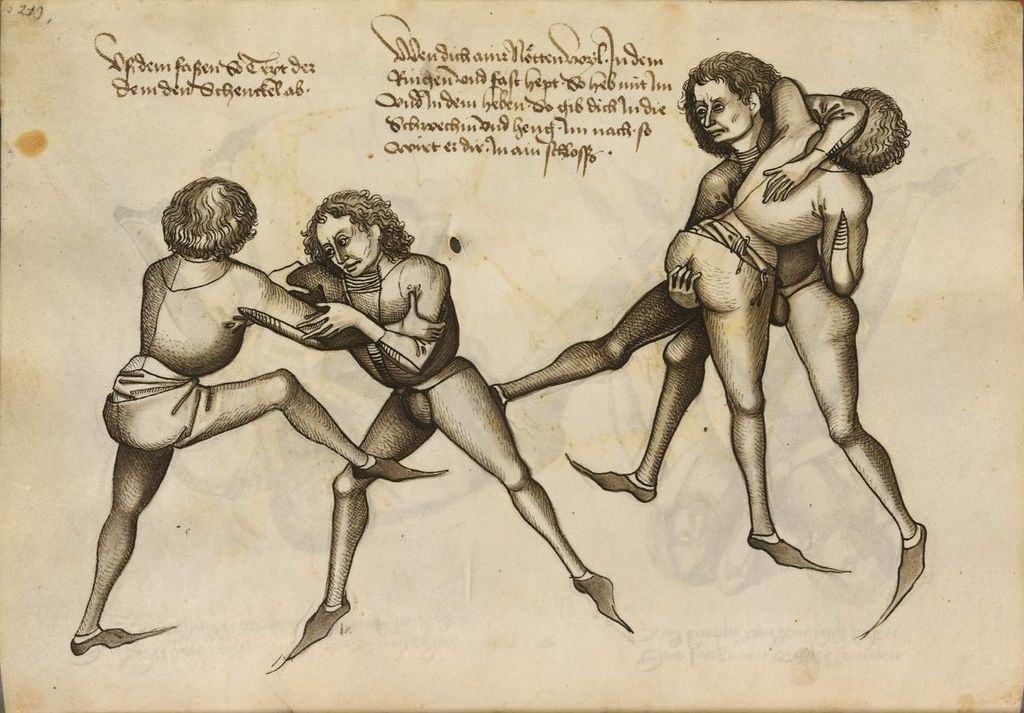 210.
Vs dem faßen So Tert der
dem den Schenckel ab.
Wen dich ainr Nötten worl. In dem
Ringen vnd fast hept So heb mit Im
Vnd In dem heben So gib dich In die
Schwechin vnd heng Im nach. so
wirt er dir. In ain schlosß.